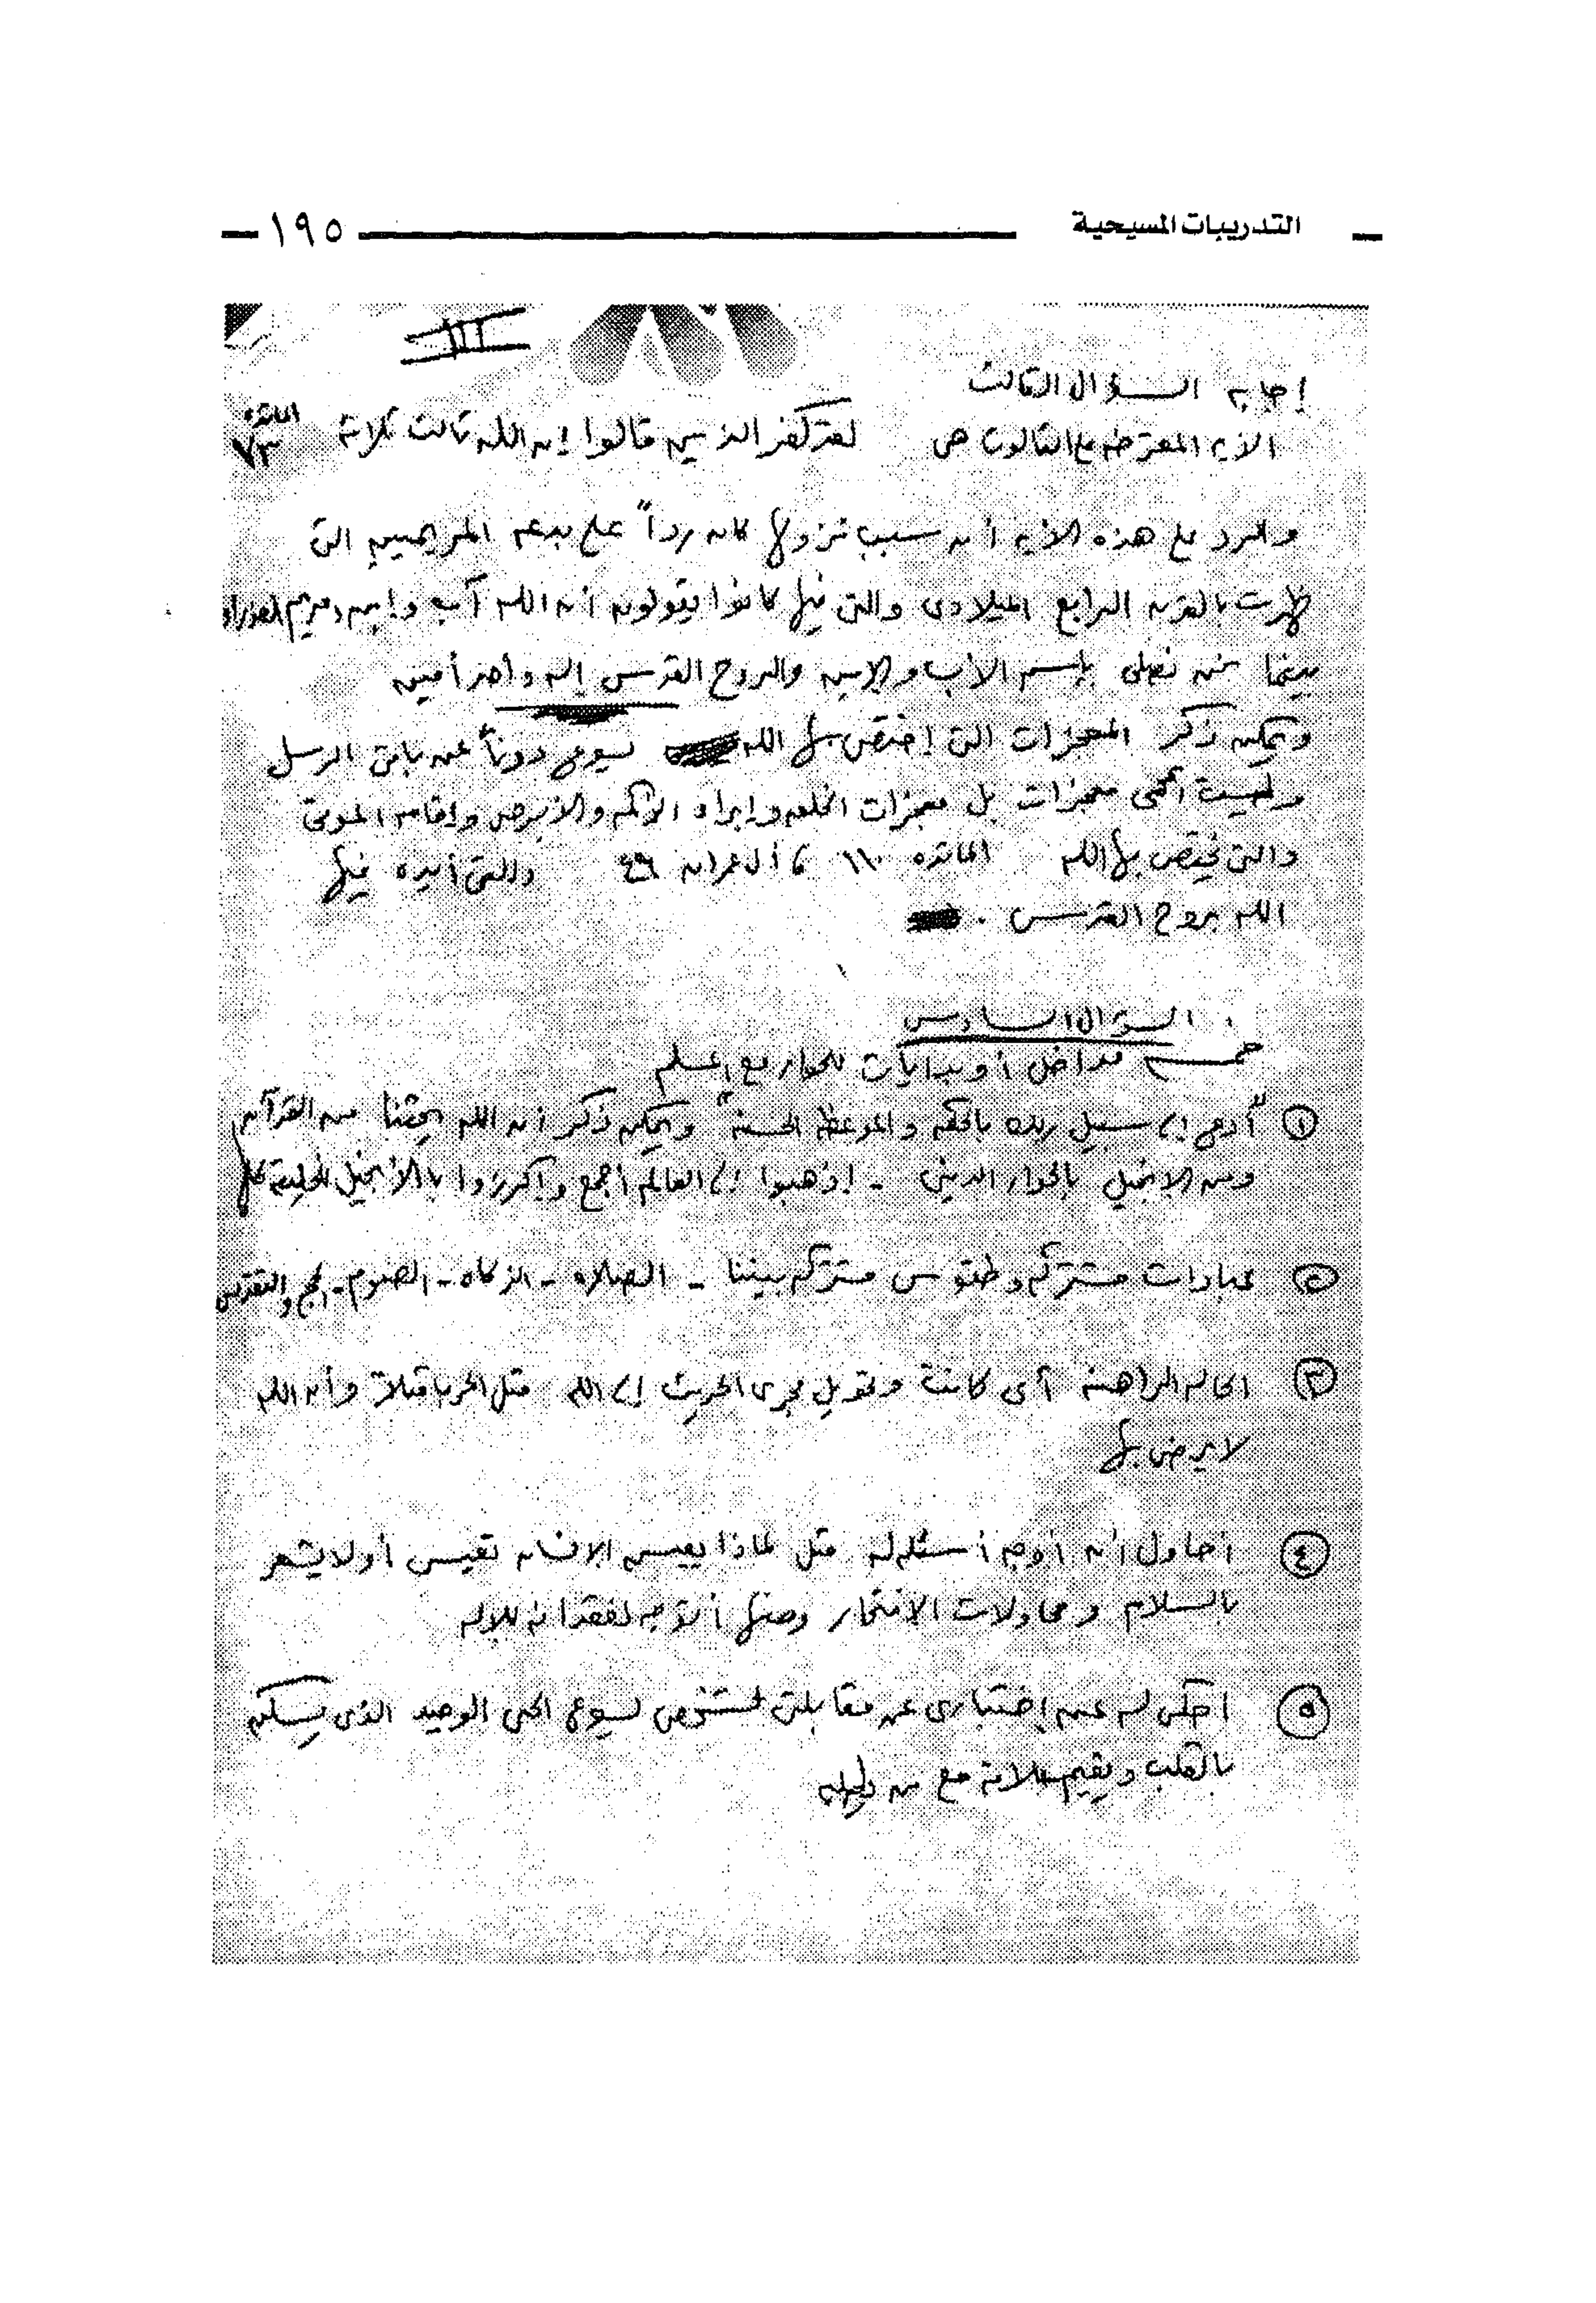 التدريبات المسيحية
١٩٥
III
إجابه السؤال الثالث
الأيه المعترضه على الثالوث هى لقد كفر الذين قالوا إن الله ثالث ثلاثة المائده ٧٣
والرد على هذه الأيه أن سبب نزولها كان رداً على بدعه المريميين التى
ظهرت بالقرن الرابع الميلادى والتى فيها كانوا يقولون أن الله آب وإبن ومريم العذراء
بينما نحن نصلى بإسم الأب والإبن والروح القدس إله واحد أمين
ويمكن ذكر المعجزات التى إختص بها الله يسوع دوناً عن باقى الرسل
وليست أى معجزات بل معجزات الخلق وإبراء الأكمه والأبرص وإقامه الموتى
والتى يختص بها الله المائده ١١٠ ، أل عمران ٤٩ والتى أيده فيها
الله بروح القدس .
السؤال السادس
خمسه مداخل أو بدايات للحوار مع المسلم
١ "أدعى إلى سبيل ربك بالحكمه والموعظه الحسنه" ويمكن ذكر أن الله يحثنا من القرآن
ومن الإنجيل بالحوار الدينى - إذهبوا إلى العالم أجمع وإكرزوا بالأنجيل للخليقة كلها
٢ عبادات مشتركه وطقوس مشتركه بيننا - الصلاه - الزكاه - الصوم - الحج والتقديس
٣ الحاله الراهنه أى كانت وتحويل مجرى الحديث إلى الله مثل الحرب مثلاً وأن الله
لا يرضى بها
٤ أحاول أن أوجه أسئله له مثل لماذا يعيش الإنسان تعيس أو لا يشعر
بالسلام ومحاولات الإنتحار ومنها أتوجه لفقدانه للإله
٥ أحكى له عن إختبارى عن مقابلتى لشخص يسوع الحى الوحيد الذى يسكن
بالقلب ويقيم علاقه مع من يطلبه